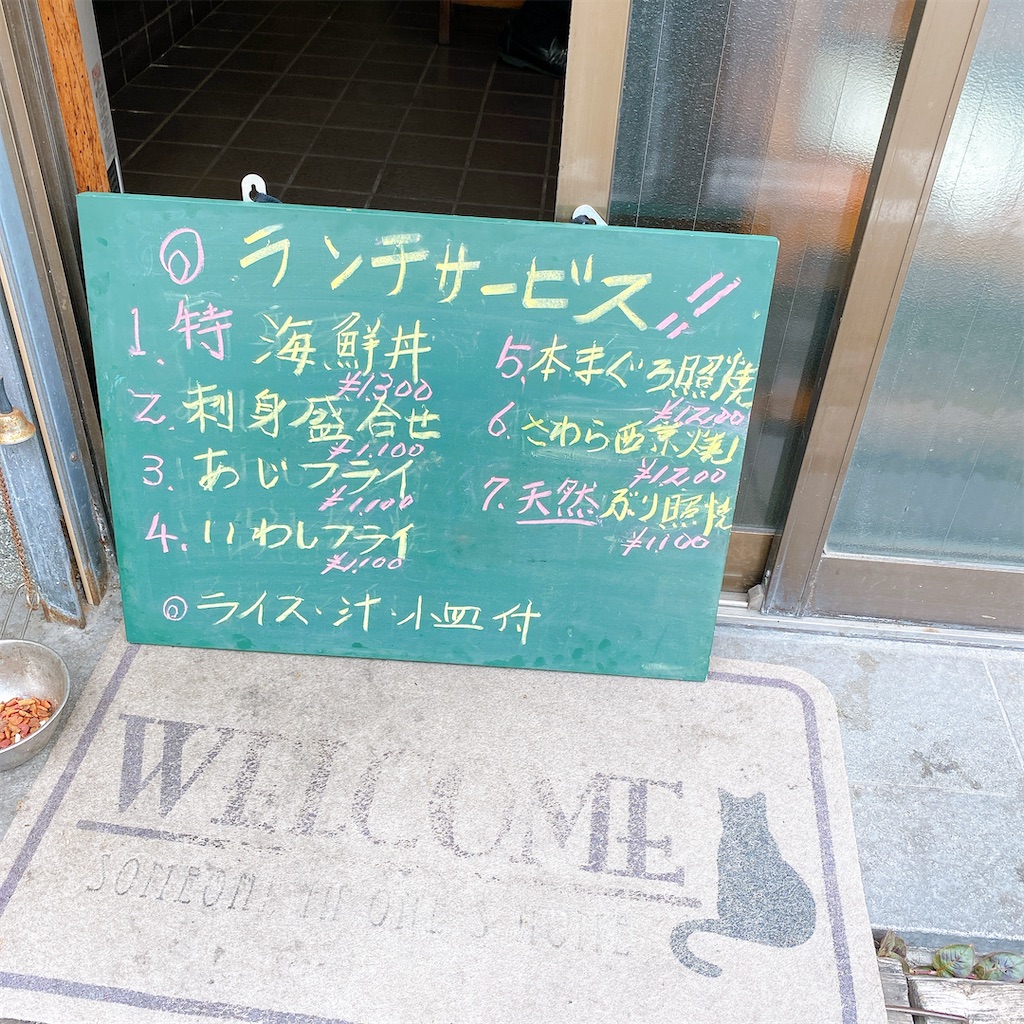 ◎ランチサービス!!
1. 特 海鮮丼
¥1.300
2. 刺身盛合せ
¥1.100
3. あじフライ
¥1.100
4. いわしフライ
¥1.100
5. 本まぐろ照焼
¥12.00
6. さわら西京焼
¥12.00
7. 天然ぶり照焼
¥11.00
◎ライス・汁・小皿付
WELCOME